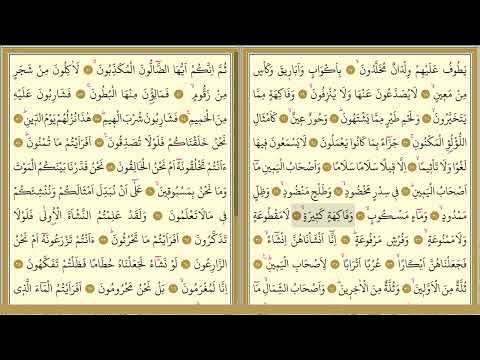 يَطُوفُ عَلَيْهِمْ وِلْدَانٌ مُخَلَّدُونَۙ بِاَكْوَابٍ وَاَبَارِيقَ وَكَأْسٍ
مِنْ مَعِينٍۙ لَا يُصَدَّعُونَ عَنْهَا وَلَا يُنْزِفُونَۙ وَفَاكِهَةٍ مِمَّا
يَتَخَيَّرُونَۙ وَلَحْمِ طَيْرٍ مِمَّا يَشْتَهُونَۜ وَحُورٌ عِينٌۙ كَاَمْثَالِ
اللُّؤْلُؤِ الْمَكْنُونِۚ جَزَٓاءً بِمَا كَانُوا يَعْمَلُونَ لَا يَسْمَعُونَ فِيهَا
لَغْوًا وَلَا تَأْثِيمًاۙ اِلَّا قِيلًا سَلَامًا سَلَامًا وَاَصْحَابُ الْيَمِينِ مَٓا
اَصْحَابُ الْيَمِينِۜ فِي سِدْرٍ مَخْضُودٍۙ وَطَلْحٍ مَنْضُودٍۙ وَظِلٍّ
مَمْدُودٍۙ وَمَٓاءٍ مَسْكُوبٍۙ وَفَاكِهَةٍ كَثِيرَةٍۙ لَا مَقْطُوعَةٍ
وَلَا مَمْنُوعَةٍۙ وَفُرُشٍ مَرْفُوعَةٍۜ اِنَّٓا اَنْشَأْنَاهُنَّ اِنْشَٓاءًۙ
فَجَعَلْنَاهُنَّ اَبْكَارًاۙ عُرُبًا اَتْرَابًاۙ لِاَصْحَابِ الْيَمِينِۜ
ثُلَّةٌ مِنَ الْاَوَّلِينَۙ وَثُلَّةٌ مِنَ الْاٰخِرِينَۜ وَاَصْحَابُ الشِّمَالِ مَٓا
ثُمَّ اِنَّكُمْ اَيُّهَا الضَّٓالُّونَ الْمُكَذِّبُونَۙ لَاٰكِلُونَ مِنْ شَجَرٍ
مِنْ زَقُّومٍۙ فَمَالِؤُنَ مِنْهَا الْبُطُونَۚ فَشَارِبُونَ عَلَيْهِ
مِنَ الْحَمِيمِۚ فَشَارِبُونَ شُرْبَ الْهِيمِۜ هٰذَا نُزُلُهُمْ يَوْمَ الدِّينِۜ
نَحْنُ خَلَقْنَاكُمْ فَلَوْلَا تُصَدِّقُونَ اَفَرَاَيْتُمْ مَا تُمْنُونَۜ
ءَاَنْتُمْ تَخْلُقُونَهُٓ اَمْ نَحْنُ الْخَالِقُونَ نَحْنُ قَدَّرْنَا بَيْنَكُمُ الْمَوْتَ
وَمَا نَحْنُ بِمَسْبُوقِينَۙ عَلٰٓى اَنْ نُبَدِّلَ اَمْثَالَكُمْ وَنُنْشِئَكُمْ
فِي مَا لَا تَعْلَمُونَ وَلَقَدْ عَلِمْتُمُ النَّشْاَةَ الْاُولٰى فَلَوْلَا
تَذَكَّرُونَ اَفَرَاَيْتُمْ مَا تَحْرُثُونَۜ ءَاَنْتُمْ تَزْرَعُونَهُٓ اَمْ نَحْنُ
الزَّارِعُونَ لَوْ نَشَٓاءُ لَجَعَلْنَاهُ حُطَامًا فَظَلْتُمْ تَفَكَّهُونَ
اِنَّا لَمُغْرَمُونَۙ بَلْ نَحْنُ مَحْرُومُونَ اَفَرَاَيْتُمُ الْمَٓاءَ الَّذِي